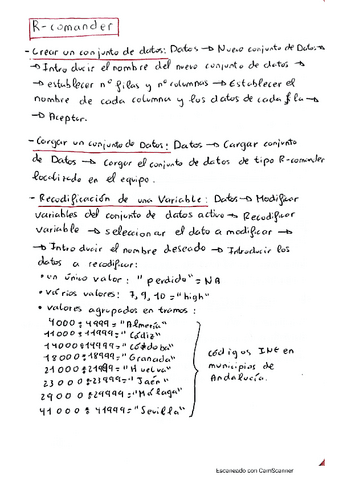 R-comander
- Crear un conjunto de datos: Datos → Nuevo conjunto de Datos →
→ Introducir el nombre del nuevo conjunto de datos →
→ establecer nº filas y nº columnas → Establecer el
nombre de cada columna y los datos de cada fila →
→ Aceptar.
- Cargar un conjunto de Datos: Datos → Cargar conjunto
de Datos → Cargar el conjunto de datos de tipo R-comander
localizado en el equipo.
- Recodificación de una Variable: Datos → Modificar
variables del conjunto de datos activo → Recodificar
variable → seleccionar el dato a modificar →
→ Introducir el nombre deseado → Introducir los
datos a recodificar:
• un único valor: "perdido" = NA
• varios valores: 7, 9, 10 = "high"
• valores agrupados en tramos:
4000:4999 = "Almería"
11000:11999 = "Cádiz"
14000:14999 = "Córdoba"
18000:18999 = "Granada"
21000:21999 = "Huelva"
23000:23999 = "Jaén"
29000:29999 = "Málaga"
41000:41999 = "Sevilla"
códigos INE en
municipios de
Andalucía.
Escaneado con CamScanner